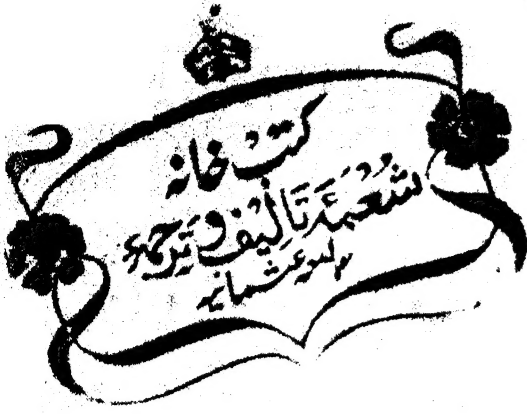 کتب خانہ
شعبۂ تالیف و ترجمہ
عثمانیہ